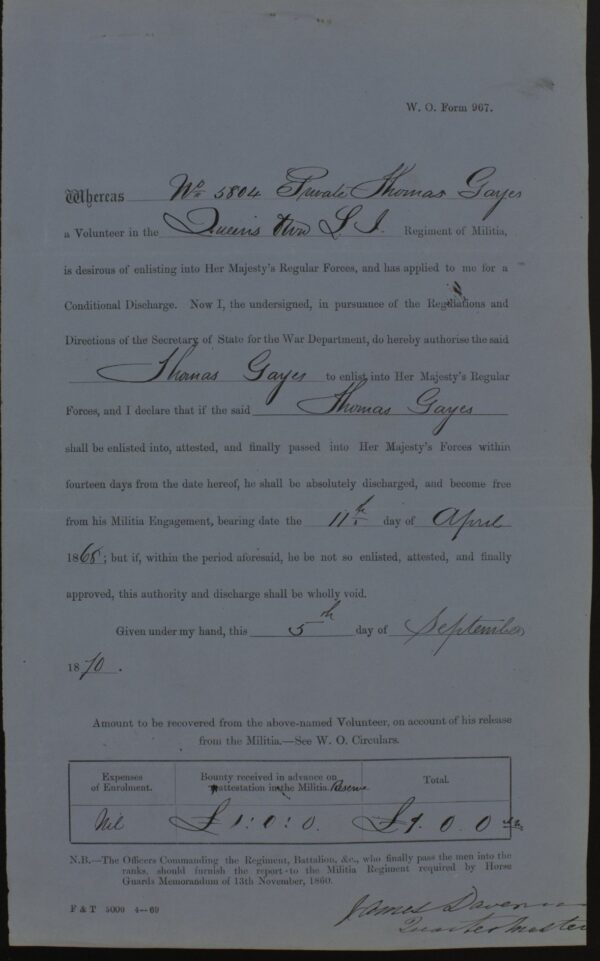 W. O. Form 967.
Whereas No 5804 Private Thomas Gayes
a Volunteer in the Queen's Own L I. Regiment of Militia,
is desirous of enlisting into Her Majesty's Regular Forces, and has applied to me for a
Conditional Discharge. Now I, the undersigned, in pursuance of the Regulations and
Directions of the Secretary of State for the War Department, do hereby authorise the said
Thomas Gayes to enlist into Her Majesty's Regular
Forces, and I declare that if the said Thomas Gayes
shall be enlisted into, attested, and finally passed into Her Majesty's Forces within
fourteen days from the date hereof, he shall be absolutely discharged, and become free
from his Militia Engagement, bearing date the 11th day of April
1868; but if, within the period aforesaid, he be not so enlisted, attested, and finally
approved, this authority and discharge shall be wholly void.
Given under my hand, this 5th day of September
1870.
Amount to be recovered from the above-named Volunteer, on account of his release
from the Militia.—See W. O. Circulars.
Expenses of Enrolment.
Bounty received in advance on attestation in the Militia Reserve
Total.
Nil
£1:0:0.
£1.0.0
N.B.—The Officers Commanding the Regiment, Battalion, &c., who finally pass the men into the
ranks, should furnish the report to the Militia Regiment required by Horse
Guards Memorandum of 13th November, 1860.
F & T 5000 4—69
James
Quartermaster